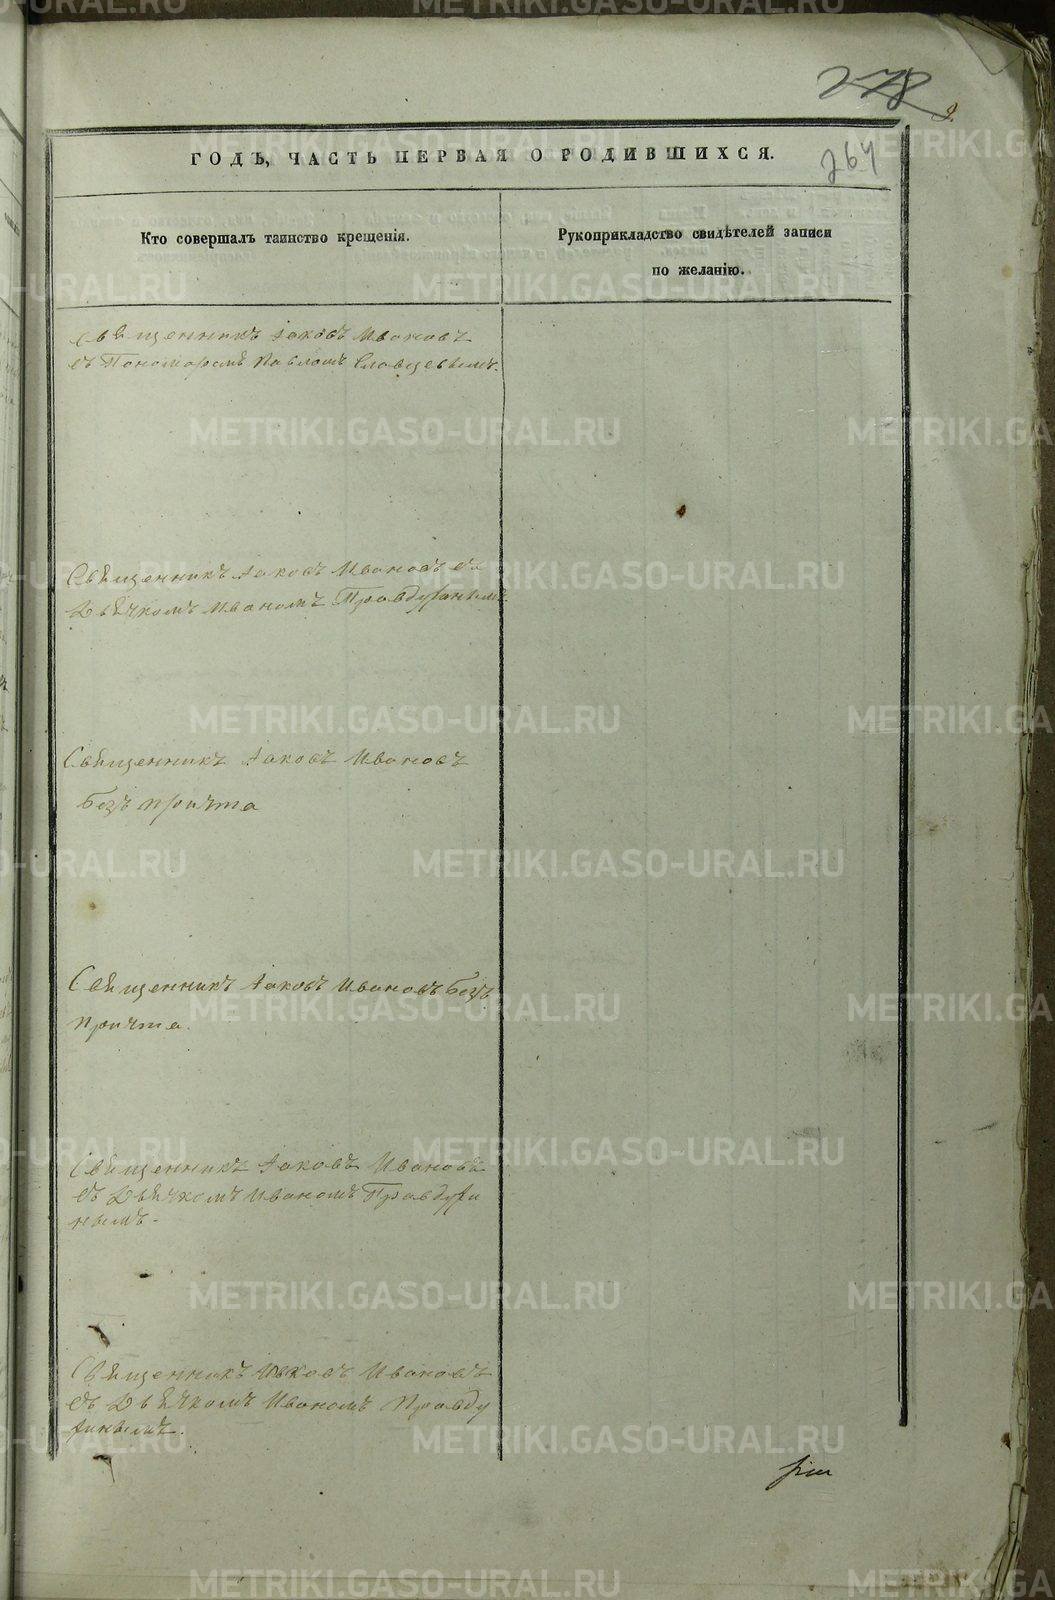 278
264
ГОДЪ, ЧАСТЬ ПЕРВАЯ О РОДИВШИХСЯ.
Кто совершалъ таинство крещенія.
Рукоприкладство свидѣтелей записи
по желанію.
Священникъ Іаковъ Ивановъ
съ Пономаремъ Павломъ Словцевымъ.
Священникъ Іаковъ Ивановъ съ
Дьячкомъ Иваномъ Правдухинымъ
Священникъ Іаковъ Ивановъ
безъ причта
Священникъ Іаковъ Ивановъ безъ
причта.
Священникъ Іаковъ Ивановъ
съ Дьячкомъ Иваномъ Правдухи
нымъ.
Священникъ Іаковъ Ивановъ
съ Дьячкомъ Иваномъ Правду
хинымъ.
METRIKI.GASO-URAL.RU